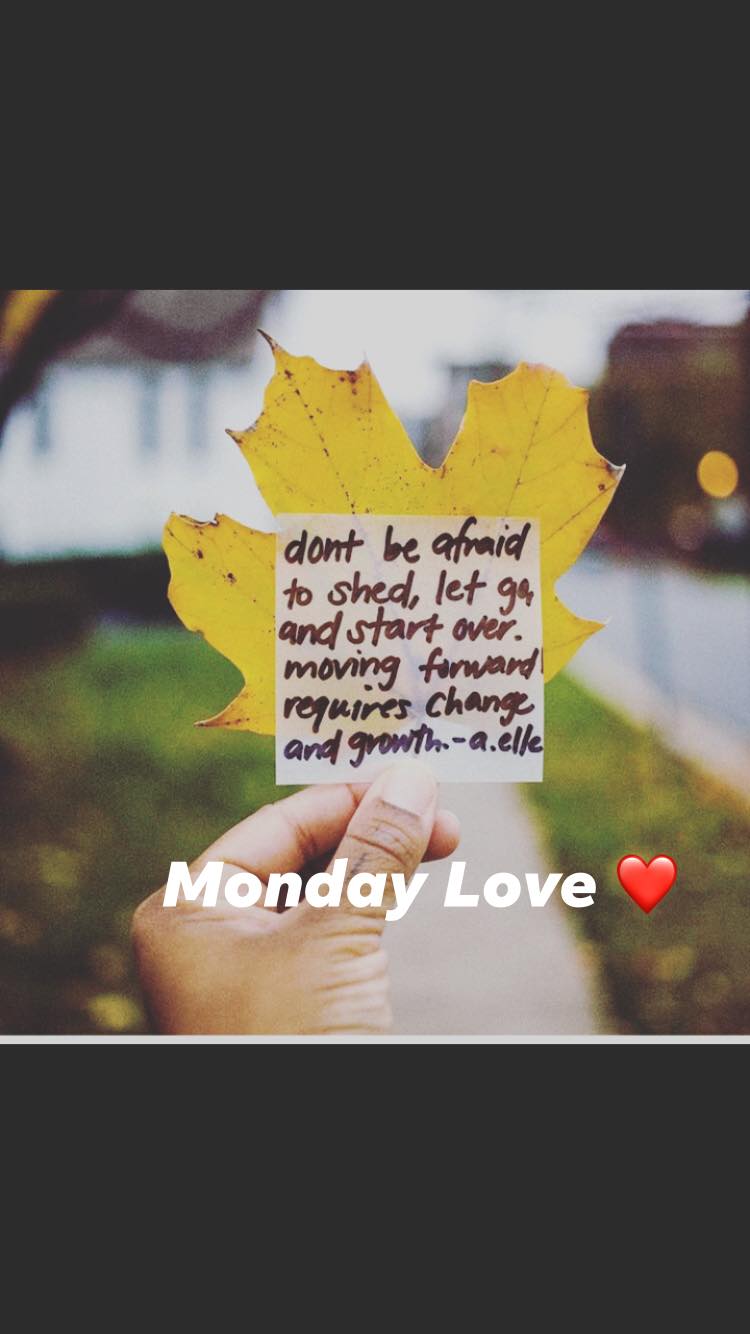 dont be afraid
to shed, let go,
and start over.
moving forward
requires change
and growth.-a.elle
Monday Love ❤️